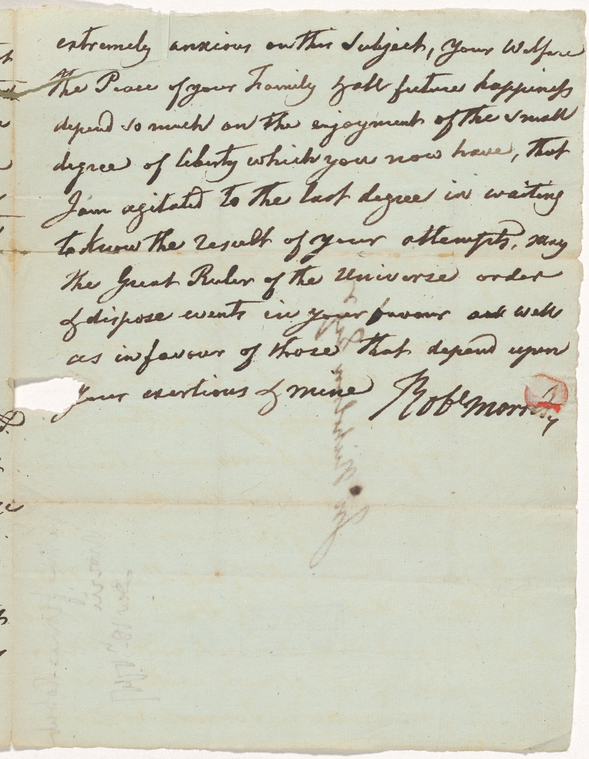 extremely anxious on this Subject, Your Welfare
the Peace of your Family & all future happiness
depend so much on the enjoyment of the small
degree of liberty which you now have, that
I am agitated to the last degree in waiting
to know the result of your attempts, may
the Great Ruler of the Universe order
& dispose events in your favour as well
as in favour of those that depend upon
Your exertions & mine Robt Morris